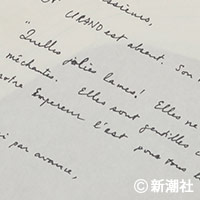 essieurs,
CIRAND est absent. Son
"Quelles jolies lames! Elles ne
méchantes. Elles sont gentilles c
otre Empereur l'est pour tous l
i par avance,
©新潮社